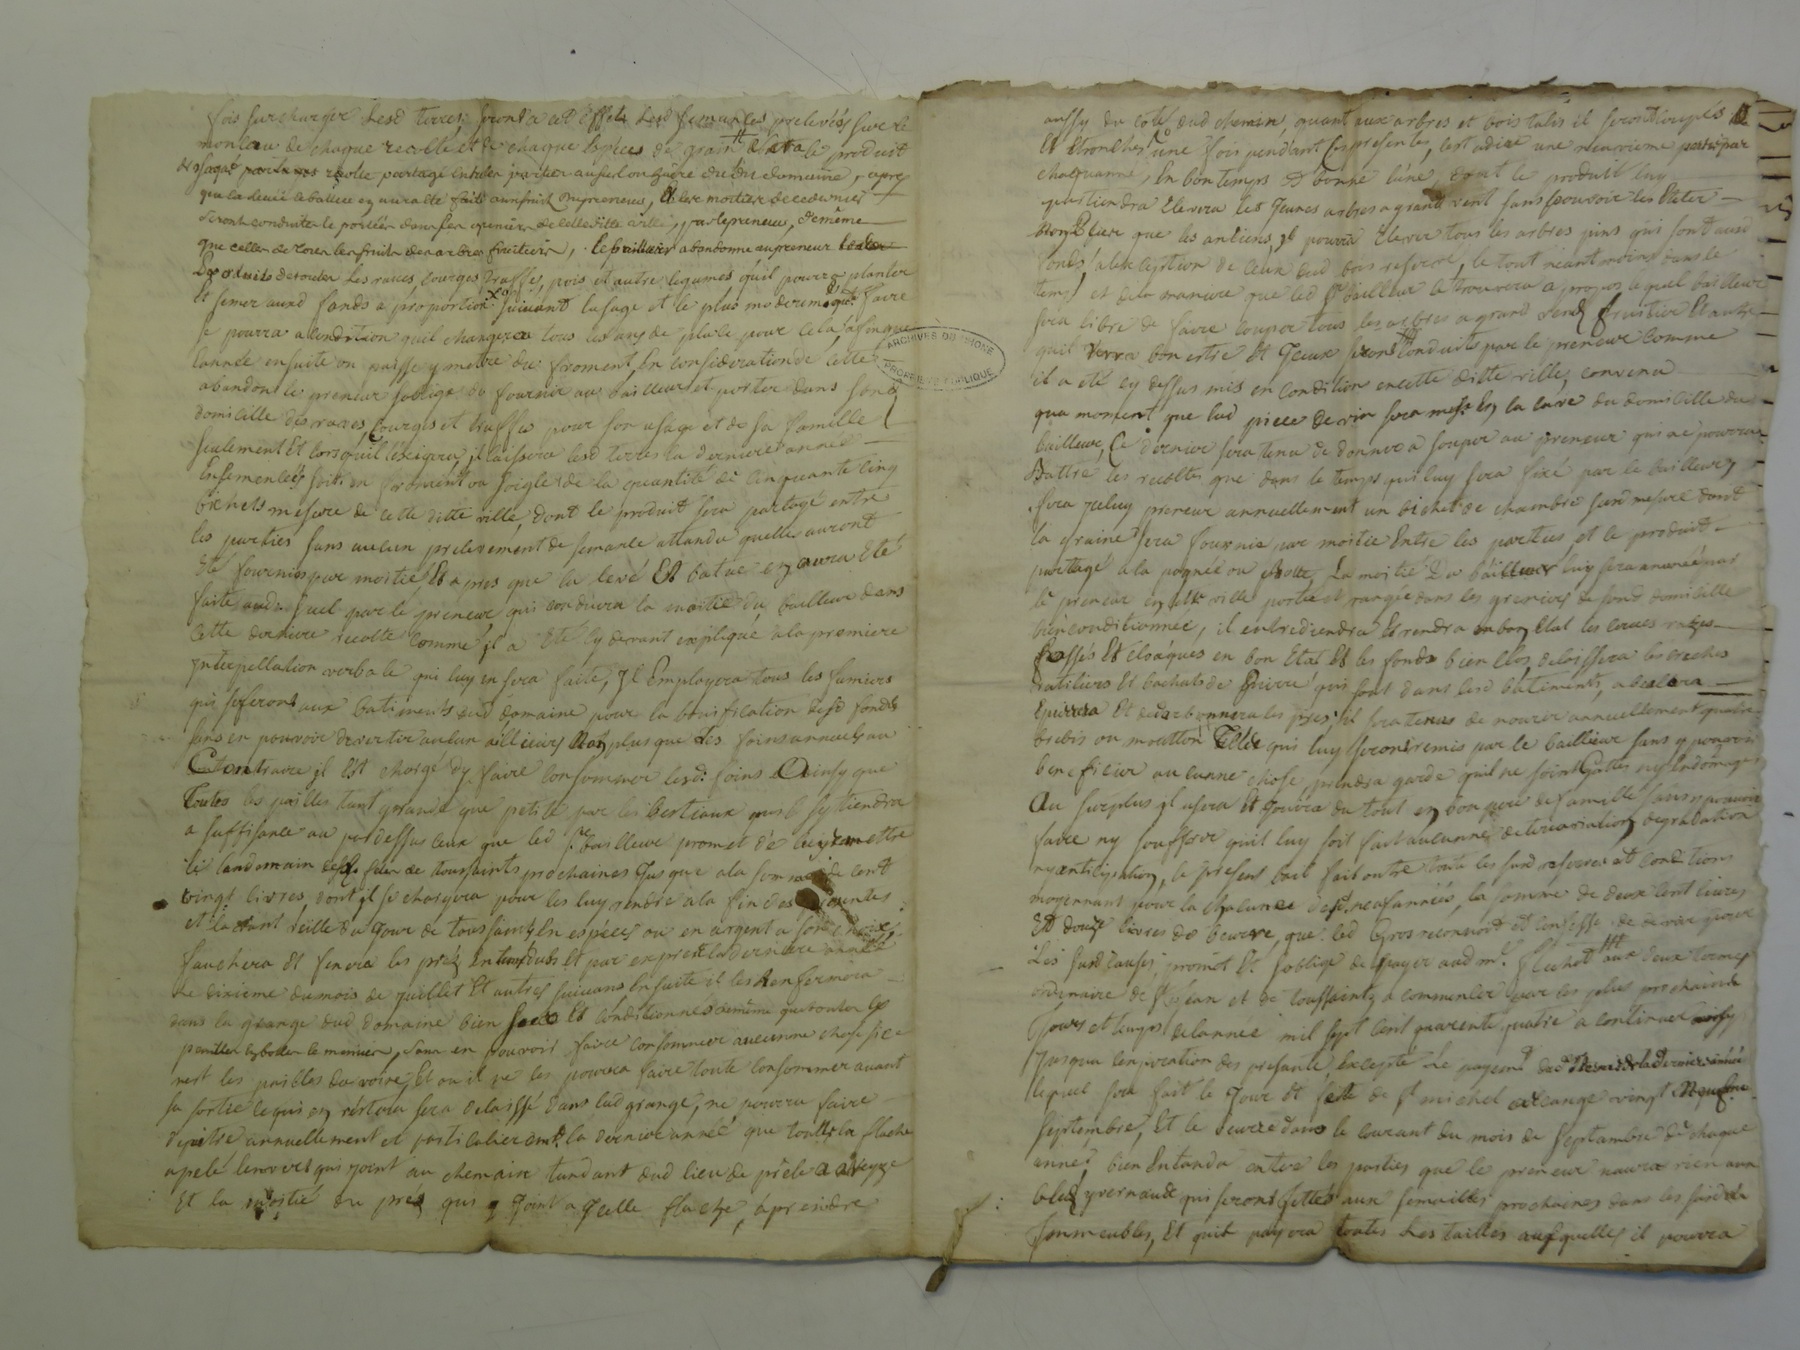 fois surcharger lesd terres, seront a cet effet lesd semances prelevés sur le
monceau de chaque recolte et de chaque espèces de grain le produit
recolte partagé entre les parties au sel ou guère dudit domaine, apres
que la levée et battue en aura été faite aux frais du preneur, et les moitier de ce dernier
seront conduite et portées dans les greniers de cette ditte ville, par le preneur, de même
que celles de tous les fruits des arbres fruitiers, le bailleur abandonne au preneur
Les produits de toutes les raves, courges truffes, pois et autre legumes qu'il pourra planter
Et semer aud fonds a proportion suivant l'usage et le plus moderem.t que faire
se pourra a condition quil changera tous les ans de place pour cela afin que
l'année ensuite on puisse y mettre du froment, En consideration de cette
abandon le preneur s'oblige de fournir au bailleur et porter dans son
domicille des raves, Courges et truffes pour son usage et de sa famille
seulement Et lors qu'il l'exigera, il laissera lesd terres la derniere année
Ensemencéés soit en froment ou soigle de la quantité de cinquante cinq
bichets mesure de cette ditte ville, dont le produit sera partagé entre
les parties sans aucun prelevement de semance attendu quelles auront
Eté fournies par moitié Et apres que la levé Et batue en aura Eté
faite aud. suel par le preneur qui conduira la moitié du bailleur dans
Cette derniere recolte comme il a Eté cy devant expliqué a la premiere
interpellation verbale qui luy en sera faite, Il Employera tous les fumiers
qui se feront aux batiments dud domaine pour la bonification desd fonds
sans en pouvoir divertir aucun ailleurs Non plus que Les foins annuels au
Contraire il Est chargé d'y faire consommer lesd. foins Ainsy que
Toutes les pailles tant grande que petite par les bestiaux quil y tiendra
a suffisance au par dessus ceux que led S.r bailleur promet de luy remettre
le landemain des festes de toussaints prochaines jusque a la somme de cent
vingt livres, dont il se chargera pour les luy rendre a la fin des presentes
et la vant veille du jour de toussaints En espéces ou en argent a son choix
fauchera Et fenera les préz en tems dubs Et par exprès la derniere année
Le dixieme du mois de juillet Et autres suivans Ensuite il les Renfermera
dans la grange dud domaine bien secs Et conditionnés de même que toutes les
pailles en pouvoir faire consommer aucunne chose si ce
nest les pailles davoine, Et ou il ne les pourra faire toute consommer avant
sa sortie ce qui en restera sera delaissé dans lad grange, ne pourra faire
depaitre annuellement et particulierem.t la derniere année que toutte la flache
apelé qui joint au chemain tendant dud lieu de
Et la moitié du prez qui joint a Icelle flache, a prendre
aussy du coté dud chemin, quant aux arbres et bois talis il seront coupés
Et Etronchés une fois pendant les presentes, cest adire une neuvieme partie par
chaque année, En bon temps Et bonne lune, dont le produit luy
apartiendra Elevera les jeunes arbres a grand vent sans pouvoir les Eteter
Non plus que les anciens, il pourra Elever tous les arbres pins qui sont aud
fonds a l'exception de ceux dud bois reservé, le tout neantmoins dans le
temps et de la maniere que led S.r bailleur le trouvera a propos lequel bailleur
sera libre de faire couper tous les arbres a grand vend fruitier Et autre
quil verra bon estre Et Iceux seront conduits par le preneur comme
il a été cy dessus mis en condition en cette ditte ville, convenu
quau moment que lad piece de vin sera mise En la cave du domicille du
bailleur, Ce dernier sera tenu de donner a souper au preneur qui ne pourra
Battre les recoltes que dans le temps qui luy sera fixé par le bailleur,
sera iceluy preneur annuellement un bichet de chambre susd mesure dont
la graine sera fournie par moitié Entre les parties, et le produit
partagé a la pognée ou Botte, La moitié Du bailleur luy sera amenée par
le preneur en cette ville portée et rangée dans les greniers de sond domicille
bien conditionnée, il entretiendra Et rendra en bon Etat les
fossés Et Elsagues en bon Etat Et les fonds bien clos, delaissera les creches
ratiliers Et bachats de pierre qui sont dans lesd batiments,
Epierrera Et les prés; il sera tenus de nourir annuellement quatre
brebis ou moutton qui luy seront remis par le bailleur sans y pouvoir
beneficier aucunne chose prendra garde quil ne soint Gattés ny Endomagés
Au surplus il usera Et jouira du tout en bon pere de famille sans y pouvoir
faire ny souffrir quil luy soit fait aucunne deterioration, degradation
ny anticipation, le present bail fait outre toute les susd reserves et conditions
moyennant pour la chacunne desd. neuf années, la somme de deux cent livres
Et douze livres de beurre, que led Gros reconnoit et confesse de devoir pour
Les susd causes; promet Et s'oblige de payer aud m.r flachot aux deux termes
ordinaire de S.t Jean et de toussaints, a commencer par les plus prochain
Jours et temps de lannee mil sept cent quarente quatre a continuer ainsy
jusqua lexpiration des presente, Excepté Le payem.t de la derniere année
lequel sera fait le Jour Et feste de S.t michel archange vingt Neufieme
septembre, Et le beurre dans le courant du mois de septambre de chaque
année, bien Entandu entre les parties que le preneur naura rien aux
bleds yvernaux qui seront jettés aux semailles prochaines dans les susd
Immeubles, Et quil payera toutes Les tailles ausquelles il pourra
ARCHIVES DU RHONE
PROPRIÉTÉ PUBLIQUE